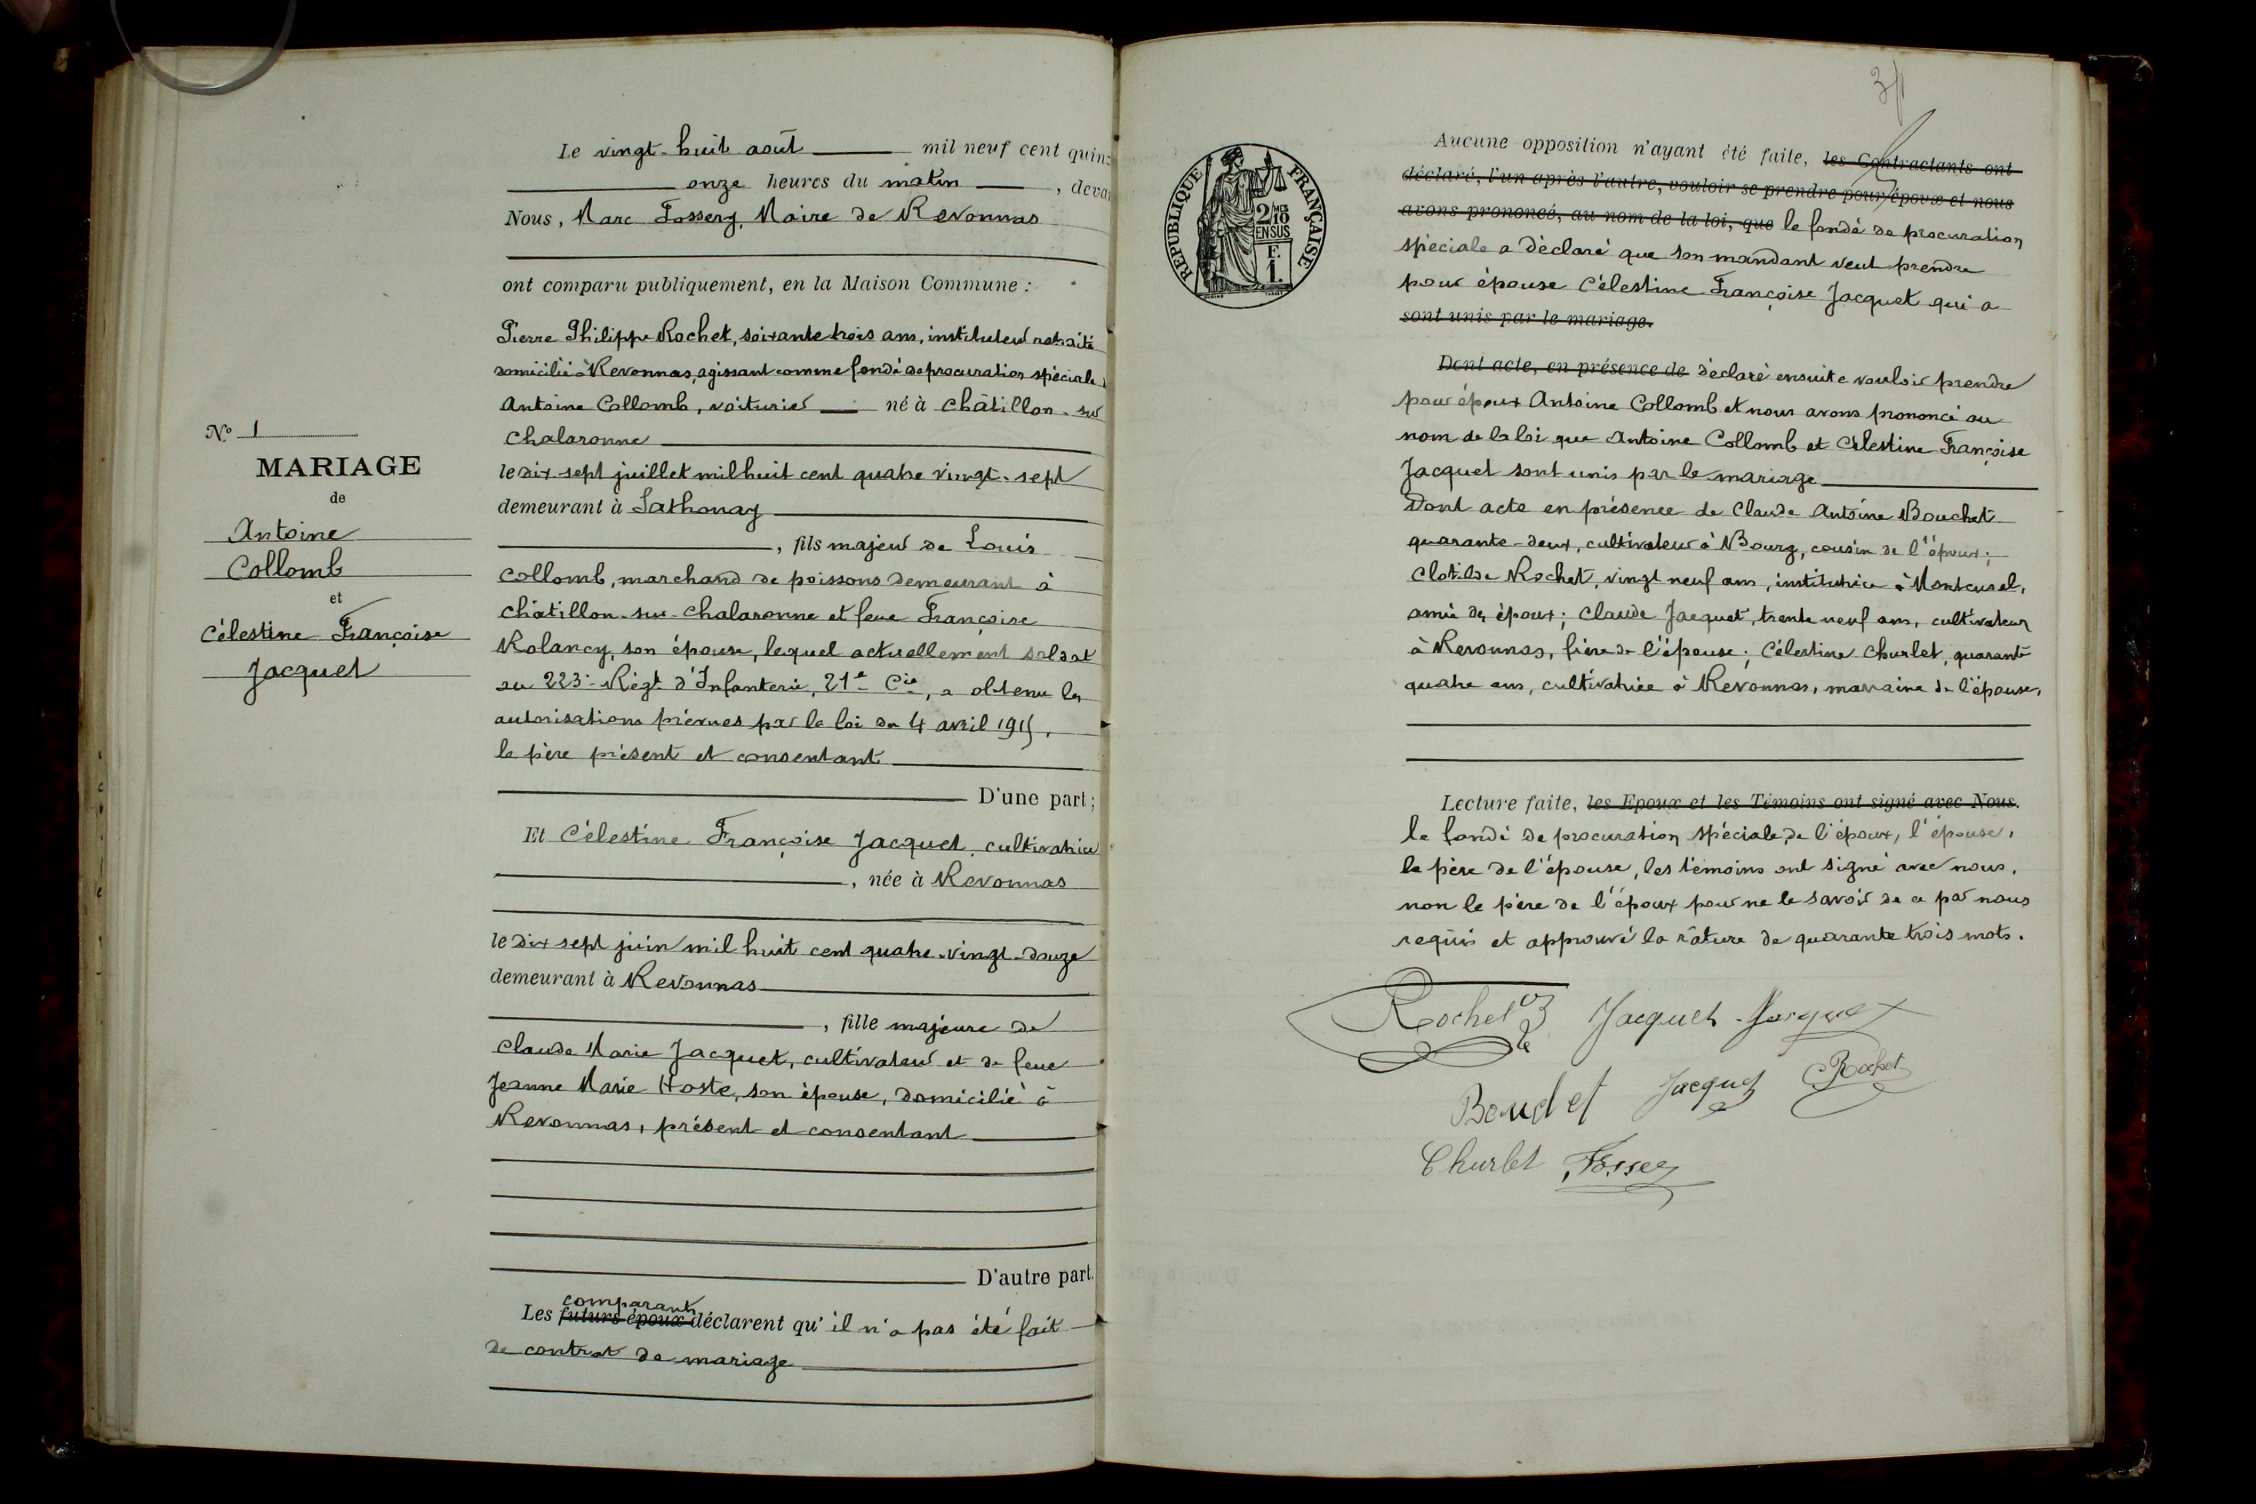 N.º 1
MARIAGE
de
Antoine
Collomb
et
Célestine Françoise
Jacquet
Le vingt-huit août mil neuf cent quin
onze heures du matin, deva
Nous, Marc Fossery, Maire de Revonnas
ont comparu publiquement, en la Maison Commune :
Pierre Philippe Rochet, soixante trois ans, instituteur retraité
domicilié à Revonnas, agissant comme fondé de procuration spéciale
Antoine Collomb, voiturier né à Châtillon-sur
Chalaronne
le dix sept juillet mil huit cent quatre vingt-sept
demeurant à Sathonay
, fils majeur de Louis
Collomb, marchand de poissons demeurant à
Châtillon-sur-Chalaronne et feue Françoise
Rolancy, son épouse, lequel actuellement soldat
au 223e Régt d'Infanterie, 21e Cie, a obtenu les
autorisations prévues par la loi du 4 avril 1915,
le père présent et consentant
D'une part ;
Et Célestine Françoise Jacquet, cultivatrice
, née à Revonnas
le dix sept juin mil huit cent quatre-vingt-douze
demeurant à Revonnas
, fille majeure de
Claude Marie Jacquet, cultivateur et de feue
Jeanne Marie Hoste, son épouse, domicilié à
Revonnas, présent et consentant
D'autre part.
comparants
Les futurs époux déclarent qu'il n'a pas été fait
de contrat de mariage
RÉPUBLIQUE FRANÇAISE
2/10
EN SUS
F.
1.
Aucune opposition n'ayant été faite, les Contractants ont
déclaré, l'un après l'autre, vouloir se prendre pour époux et nous
avons prononcé, au nom de la loi, que le fondé de procuration
spéciale a déclaré que son mandant veut prendre
pour épouse Célestine Françoise Jacquet qui a
sont unis par le mariage.
Dont acte, en présence de déclaré ensuite vouloir prendre
pour époux Antoine Collomb et nous avons prononcé au
nom de la loi que Antoine Collomb et Célestine Françoise
Jacquet sont unis par le mariage
Dont acte en présence de Claude Antoine Bouchet
quarante-deux, cultivateur à Bourg, cousin de l'époux ;
Clotilde Rochet, vingt neuf ans, institutrice à Montcusel,
amie des époux ; Claude Jacquet, trente neuf ans, cultivateur
à Revonnas, frère de l'épouse ; Célestine Churlet, quarante
quatre ans, cultivatrice à Revonnas, marraine de l'épouse,
Lecture faite, les Epoux et les Témoins ont signé avec Nous.
le fondé de procuration spéciale de l'époux, l'épouse,
le père de l'épouse, les témoins ont signé avec nous,
non le père de l'époux pour ne le savoir de ce par nous
requis et approuvé la râture de quarante trois mots.
Rochet Jacquet Jacquet
Bouchet Jacquet C Rochet
Churlet Fossery